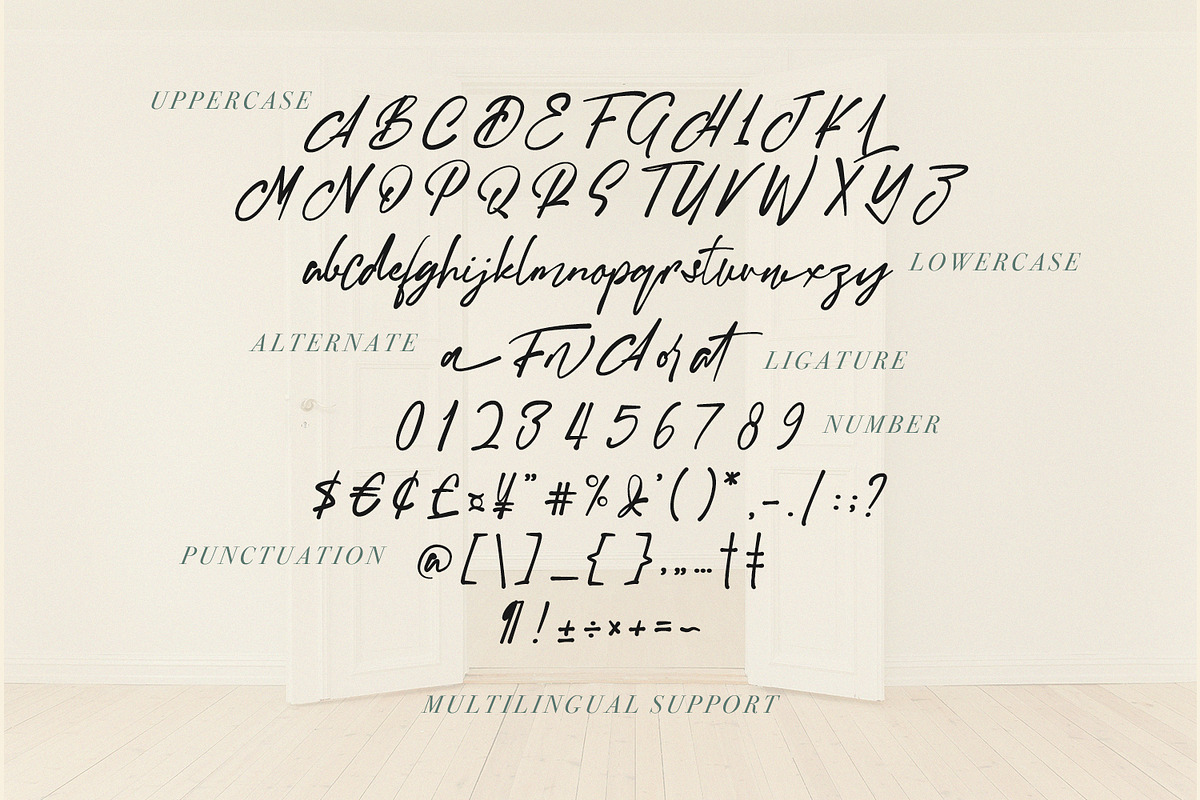 UPPERCASE A B C D E F G H I J K L
M N O P Q R S T U V W X Y Z
abcdefghijklmnopqrstuvwxzy LOWERCASE
ALTERNATE a F N A or at LIGATURE
0 1 2 3 4 5 6 7 8 9 NUMBER
$ € ¢ £ ¤ ¥ " # % & ' ( ) * , - . / : ; ?
PUNCTUATION @ [ \ ] _ { } ‚ „ … † ‡
¶ ! ± ÷ × + = ~
MULTILINGUAL SUPPORT